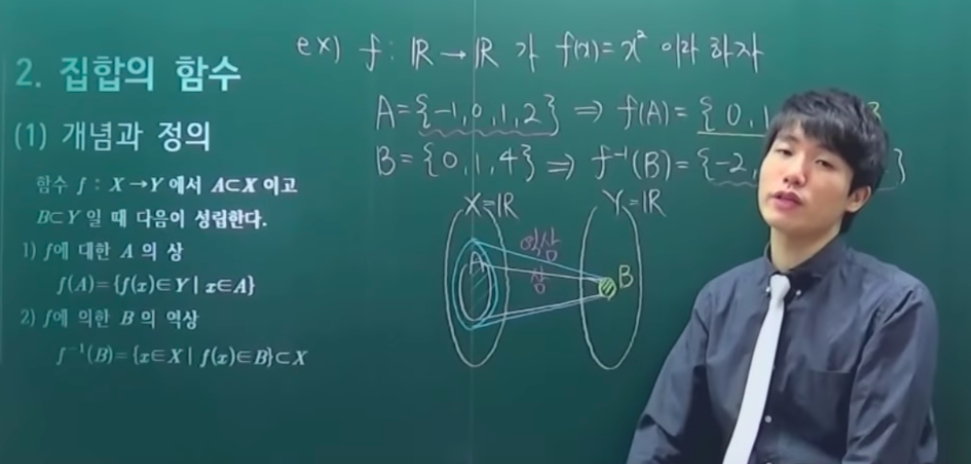 2. 집합의 함수
(1) 개념과 정의
함수 f : X→Y 에서 A⊂X 이고
B⊂Y 일 때 다음이 성립한다.
1) f에 대한 A 의 상
f(A)={f(x)∈Y | x∈A}
2) f에 의한 B 의 역상
f⁻¹(B)={x∈X | f(x)∈B}⊂X
ex) f : ℝ → ℝ 가 f(x)=x² 이라 하자
A={-1,0,1,2} ⇒ f(A)={0,1 }
B={0,1,4} ⇒ f⁻¹(B)={-2, }
X=ℝ Y=ℝ
역상
A 상 B